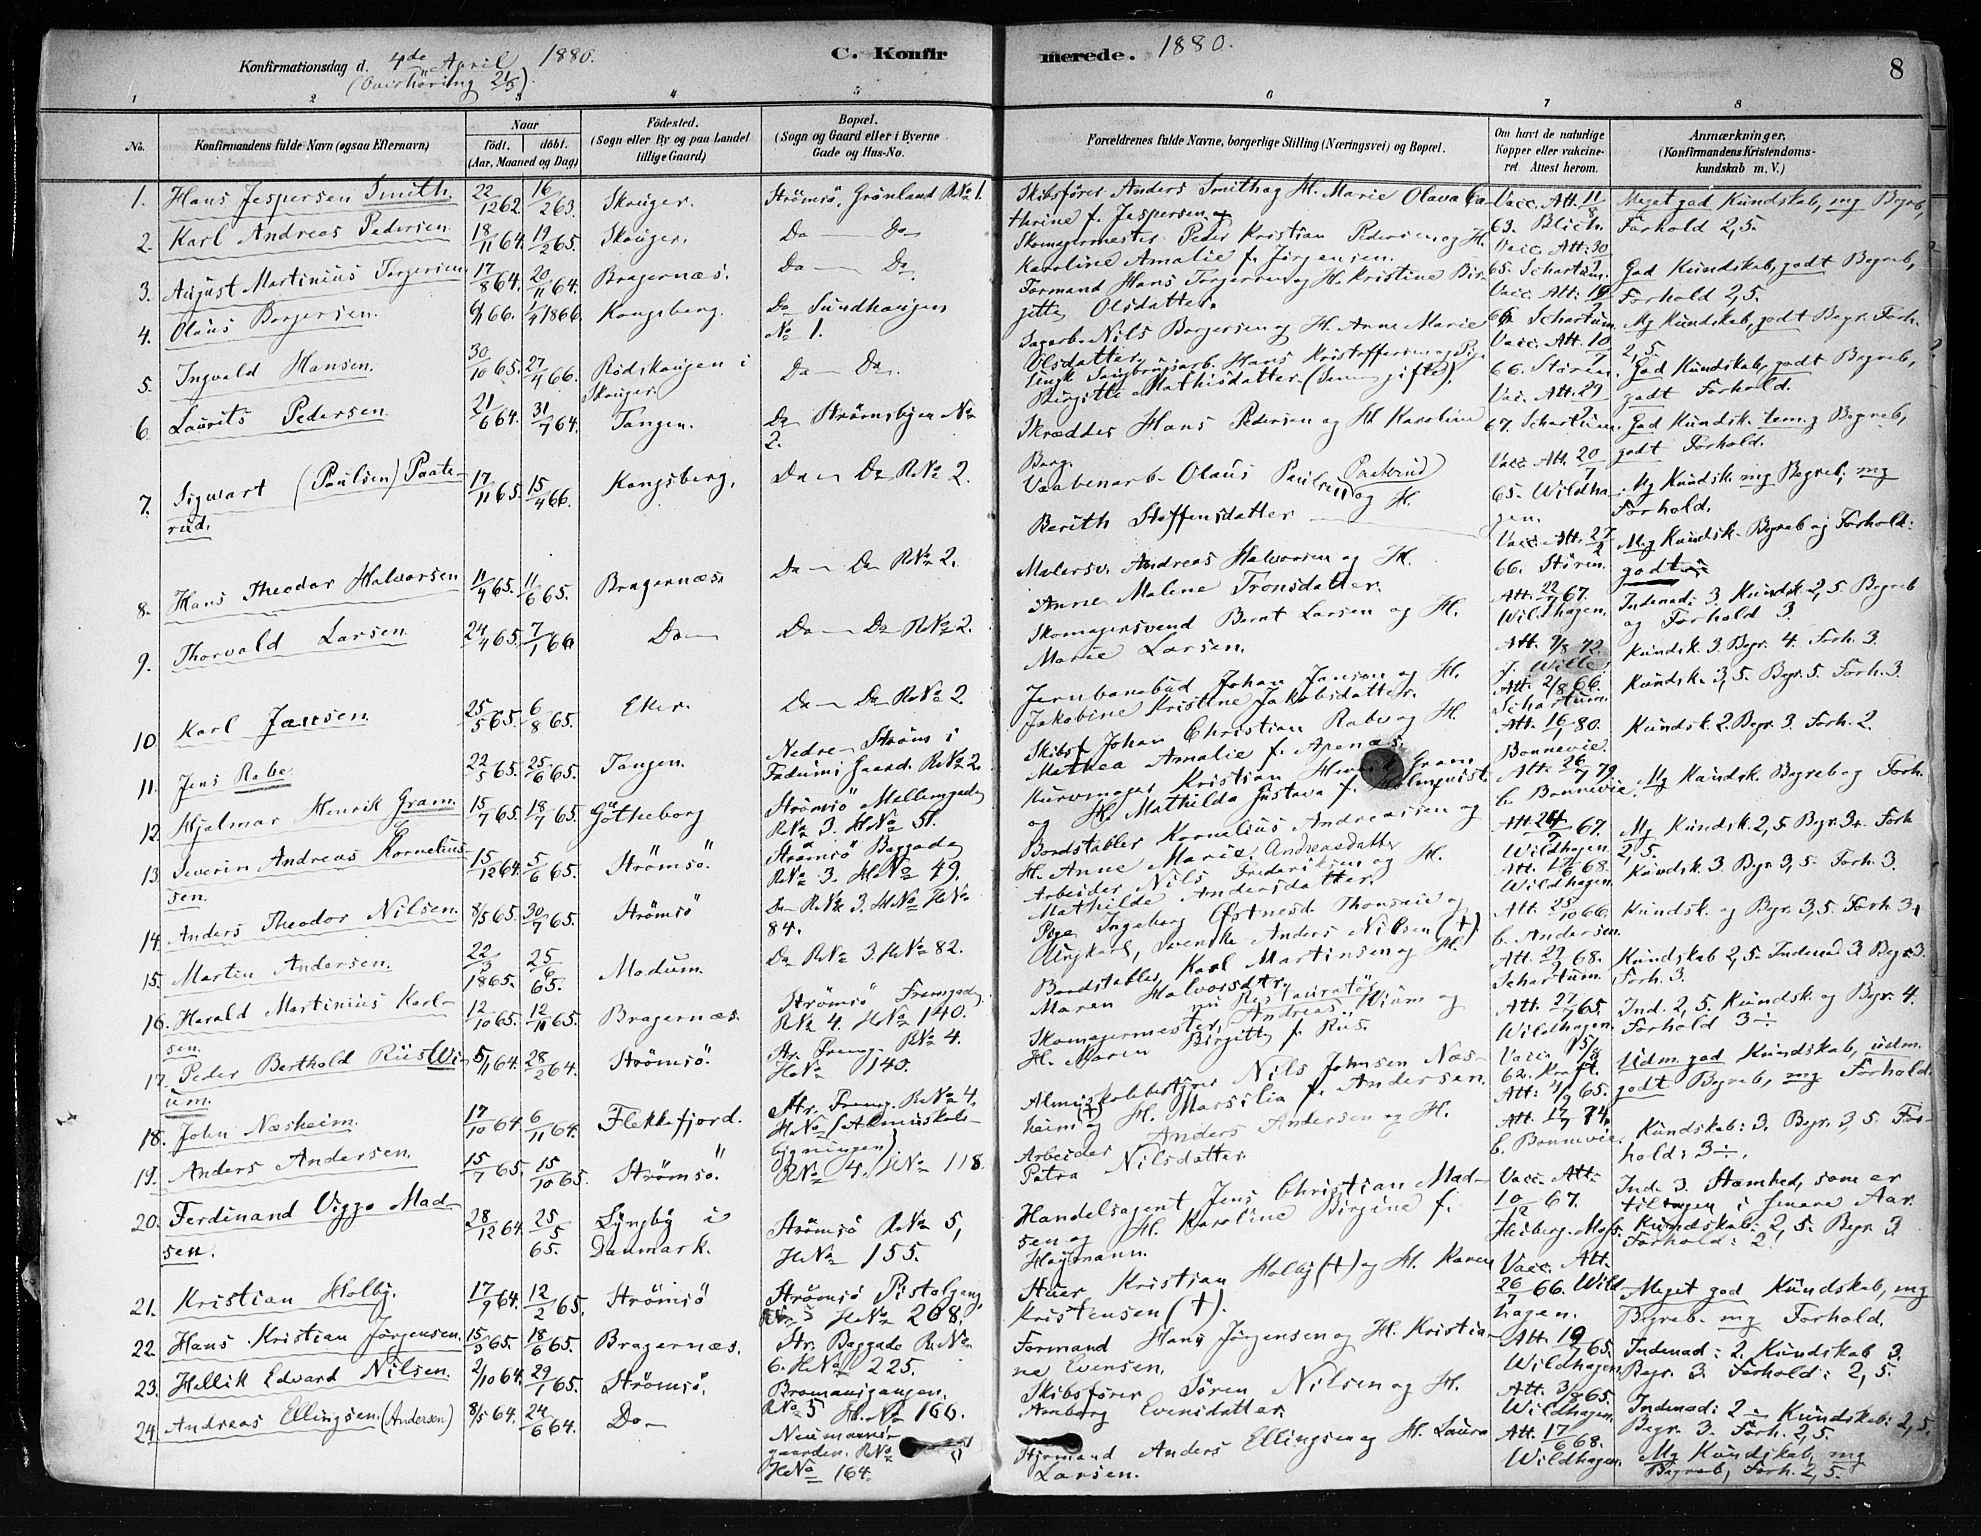 Konfirmationsdag d. 4de April 1880. C. Konfir
(Overhöring 21/3)
1 2 3 4 5
No. Konfirmandens fulde Navn (ogsaa Efternavn) Naar födt. döbt. (Aar, Maaned og Dag) Födested. (Sogn eller By og paa Landet tillige Gaard) Bopæl. (Sogn og Gaard eller i Byerne Gade og Hus-No.
1. Hans Jespersen Smith. 22/12 62. 16/2 63. Skouger. Strömsö, Grönland RNo 1.
2. Karl Andreas Pedersen 18/11 64. 19/2 65. Skouger. Do — Do
3. August Martinius Torgersen 17/8 64. 20/11 64. Bragernæs. Do — Do
4. Olaus Borgersen. 6/1 66. 1/4 1866. Kongsberg. Do Sundhaugen
No 1.
5. Ingvald Hansen. 30/10 65. 27/4 66. Rödskaugen i Do — Do.
Skouger.
6. Laurits Pedersen 21/6 64. 31/7 64. Tangen. Do Strömsbyen No
2.
7. Sigwart (Paulsen) Paate- 17/11 65. 15/4 66. Kongsberg. Do — Do RNo 2.
rud.
8. Hans Theodor Halvorsen 11/4 65. 11/6 65. Bragernæs. Do — Do RNo 2.
9. Thorvald Larsen 24/4 65. 7/1 66 Do — Do — Do RNo 2.
10. Karl Jansen 25/5 65. 6/8 65. Eker. Do — Do RNo 2
11. Jens Rabe 22/5 65. 25/6 65. Tangen. Nedre Ströms i
Fadums Gaard. RNo 2.
12. Hjalmar Henrik Gram. 15/7 65. 18/7 65. Götheborg Strömsö Mellemgade
RNo 3. HNo 51.
13. Severin Andreas Kornelius- 15/12 64. 5/6 65. Strömsö. Strömsö Baggade
sen. RNo 3. HNo 49.
14. Anders Theodor Nilsen. 8/5 65. 30/7 65. Strömsö Do RNo 3. HNo HNo
84.
15. Martin Andersen. 22/3 1865. 25/6 65. Modum. Do RNo 3. HNo 82.
16. Harald Martinius Karl- 12/10 65. 12/11 65. Bragernæs. Strömsö Fremgade
sen. RNo 4. HNo 140.
17. Peder Berthold Riis Wi- 5/1 64. 28/2 64. Strömsö. Str. Fremg. RNo 4.
um. HNo 140.
18. John Næsheim. 17/10 64. 6/11 64. Flekkefjord. Str. Fremg. RNo 4.
HNo (Almuskole-
bygningen)
19. Anders Andersen. 15/7 65. 15/10 65. Strömsö. RNo 4. HNo 118.
20. Ferdinand Viggo Mad- 28/12 64. 25/5 65. Lyngby i Strömsö RNo 5,
sen. Danmark. HNo 155.
21. Kristian Holby. 17/9 64. 12/2 65. Strömsö Strömsö Pistolgang
5 HNo 208.
22. Hans Kristian Jörgensen. 15/3 65. 18/6 65. Bragernæs. Str. Baggade RNo
6. HNo 225.
23. Hellik Edvard Nilsen. 2/10 64. 29/1 65. Strömsö. Bromansgangen.
RNo 5 H.No 160.
24. Andreas Ellingsen. (Andersen) 8/5 64. 24/6 64. Do — Neumanns-
gaarden. RNo
HNo 164.
merede. 1880. 8
6 7 8
Forældrenes fulde Navne, borgerlige Stilling (Næringsvei) og Bopæl. Om havt de naturlige Kopper eller vakcineret. Attest herom. Anmærkninger, (Konfirmandens Kristendoms-kundskab m. V.)
Skibsförer Anders Smith og H. Marie Olava Ca- Vacc. Att. 11/8 Meget god Kundskab, mg Begreb,
therine f. Jespersen 63. Blich. Forhold 2,5.
Skomagermester Peder Kristian Pedersen og H. Vacc. Att. 30
Karoline Amalie f. Jörgensen. 65. Schartum. God Kundskab, godt Begreb,
Formand Hans Torgersen og H. Kristine Bir- Vacc. Att. Forhold 2,5.
gitte Olsdatter. Schartum. Mg Kundskab, godt Begr. Forh.
Sagarb. Nils Borgersen og H. Anne Marie Vacc. Att. 10/7 2,5.
Olsdatter. 66. Stören. God Kundskab, godt Begreb,
Ungk. Hans Kristoffersen og Pige Vac. Att. 29 godt Forhold.
Birgitte Mathisdatter (Senere gifte). 67. Schartum. God Kundsk. tem. g Begreb,
Skrædder Hans Pedersen og H. Karoline godt Forhold.
Borg. Vacc. Att. 20/7
Vaabenarb. Olaus Paulsen Paaterud og H. 65. Wildha- Mg Kundsk. mg Begreb, mg
Berith Steffensdatter gen. Forhold.
Malersv. Andreas Halvorsen og H. Vacc. Att. 27/2 Mg Kundsk. Begreb og Forhold:
Anne Malene Tronsdatter. 66. Stören. godt
Skomagersvend Bernt Larsen og H. Att. 22/7 67. Indenad: 3 Kundsk. 2,5 Begreb
Marie Larsen. Wildhagen. og Forhold 3.
Jernbanebud Johan Jansen og H. Att. 7/8 72. Kundsk. 3. Begr. 4. Forh. 3.
Jakobine Kristine Jakobsdatter. J. Wille.
Skibsf. Johan Christian Rabe og H. Att. 2/8 66. Kundsk. 3,5. Begr. 5. Forh. 3.
Mathea Amalie f. Apenæs. Schartum.
Kurvmager Kristian Henrik Gram Att. 16/1 80. Kundsk. 2. Begr. 3 Forh. 2.
og H. Mathilda Gustava f. Holmquist. Bonnevie.
Bordstabler Kornelius Andreassen og Att. 26/7 79. Mg Kundsk. Begreb og Forh.
H. Anne Marie Andreasdatter b. Bonnevie.
Arbeider Nils Frederiksen og H. Att. 67. Mg Kundsk. 2,5 Begr. 3+ Forh
Mathilde Andersdatter. Wildhagen. 2,5.
Pige Ingeborg Thonsen og Att. 68. Kundsk. 3. Begr. 3,5. Forh. 3.
Ungkarl, Svenske Anders Nilsen (+). Wildhagen.
Bordstabler, Karl Martinsen og H. Att. 25/10 66. Kundsk. og Begr. 3,5. Forh. 3+
Maren Halvorsdtr. b. Andersen.
nu Restauratör Att. 68. Kundskab 2,5. Indenad 3. Begr. 3.
Skomagermester, Andreas Wium og Schartum. Forh. 3.
H. Maren Birgitte f. Riis. Att. 27/7 65. Ind. 2,5. Kundsk. og Begr. 4.
Wildhagen. Forhold 3÷.
Almuskolebestyrer Nils Johnsen Næs- Vacc. 15/8 Udm. god Kundskab, udm.
heim (+) og H. Marsilia f. Andersen. 62. Kraft. godt Begreb, mg Forhold.
Arbeider Anders Andersen og H. Att. 4/9 65.
Petra Nilsdatter. Att. 17/7 74. Kundskab: 3. Begr. 3,5. For-
b. Bonnevie. hold: 3÷.
Handelsagent Jens Christian Mad- Vacc. Att. Ind. 3. Stamhed, som er
sen og H. Karoline Birgine f. 10/12 67. tiltagen i senere Aar.
Högmann. Heiberg. Moss. Kundskab: 2,5. Begr. 3
Forhold: 2.
Kristian Holby (+) og H. Karen Vacc. Att.
Kristensen (+). 26/7 66. Wild- Meget god Kundskab, mg
hagen. Begreb. mg Forhold.
Formand Hans Jörgensen og H. Kristia- Att. 65. Indenad: 2. Kundskab 3.
ne Evensen. Wildhagen. Begr. 3. Forhold: 2,5.
Skibsförer Sören Nilsen og H. Att. 3/8 65. Indenad: 2÷ Kundskab: 2,5.
Evensdatter. Wildhagen. Begr. 3. Forh. 2,5.
Styrmand Anders Ellingsen og H. Laura Att. 17/6 68. Mg Kundskab, mg
Larsen. Wildhagen. Begreb, Forh. 2,5.